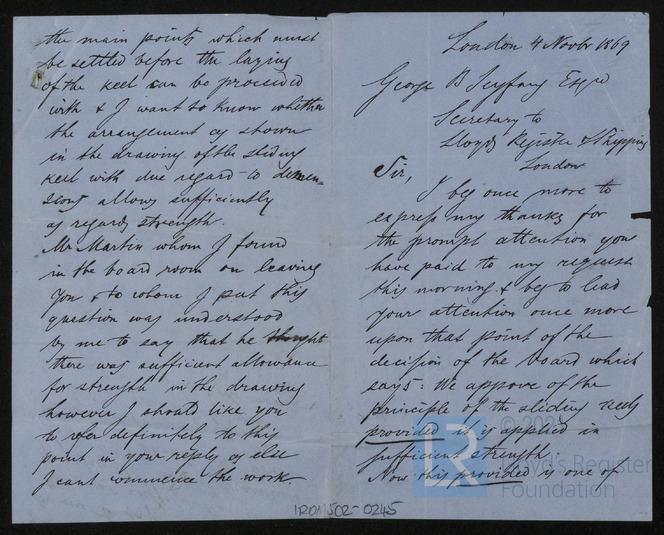 London 4 Novbr 1869
George B Seyfang Esqre
Secretary to
Lloyds Register of Shipping
London
Sir,
I beg once more to
express my thanks for
the prompt attention you
have paid to my request
this morning & beg to lead
your attention once more
upon that point of the
decision of the board which
says: We approve of the
principle of the sliding keels
provided it is applied in
sufficient strength.
Now this provided is one of
the main points which must
be settled before the laying
of the keel can be proceeded
with & I want to know whether
the arrangement as shown
in the drawing of the sliding
keel with due regard to dimen=
sions allows sufficiently
as regards strength.
Mr Martin whom I found
in the board room on leaving
you & to whom I put this
question was understood
by me to say that he thought
there was sufficient allowance
for strength in the drawing
however I should like you
to refer definitely to this
point in your reply as else
I cant commence the work.
IRON502-0245
LR
© 202
Lloyd's Register
Foundation